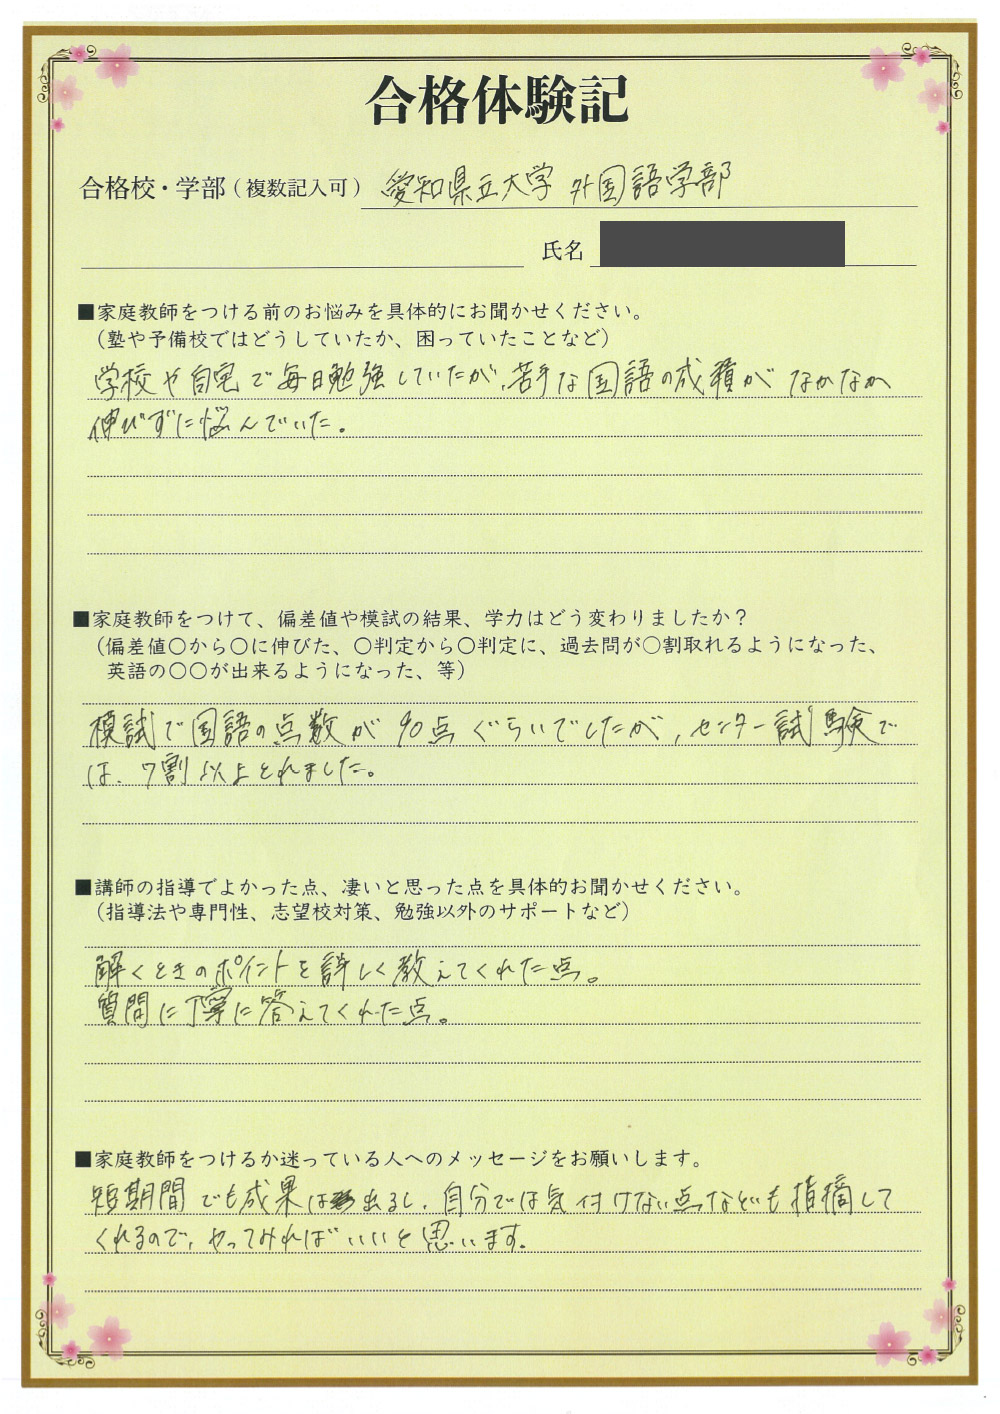 合格体験記
合格校・学部（複数記入可） 愛知県立大学 外国語学部
氏名
■家庭教師をつける前のお悩みを具体的にお聞かせください。
（塾や予備校ではどうしていたか、困っていたことなど）
学校や自宅で毎日勉強していたが、苦手な国語の成績がなかなか
伸びずに悩んでいた。
■家庭教師をつけて、偏差値や模試の結果、学力はどう変わりましたか？
（偏差値○から○に伸びた、○判定から○判定に、過去問が○割取れるようになった、
英語の○○が出来るようになった、等）
模試で国語の点数が90点ぐらいでしたが、センター試験で
は、7割以上とれました。
■講師の指導でよかった点、凄いと思った点を具体的お聞かせください。
（指導法や専門性、志望校対策、勉強以外のサポートなど）
解くときのポイントを詳しく教えてくれた点。
質問に丁寧に答えてくれた点。
■家庭教師をつけるか迷っている人へのメッセージをお願いします。
短期間でも成果は出るし、自分では気付けない点なども指摘して
くれるので、やってみればいいと思います。